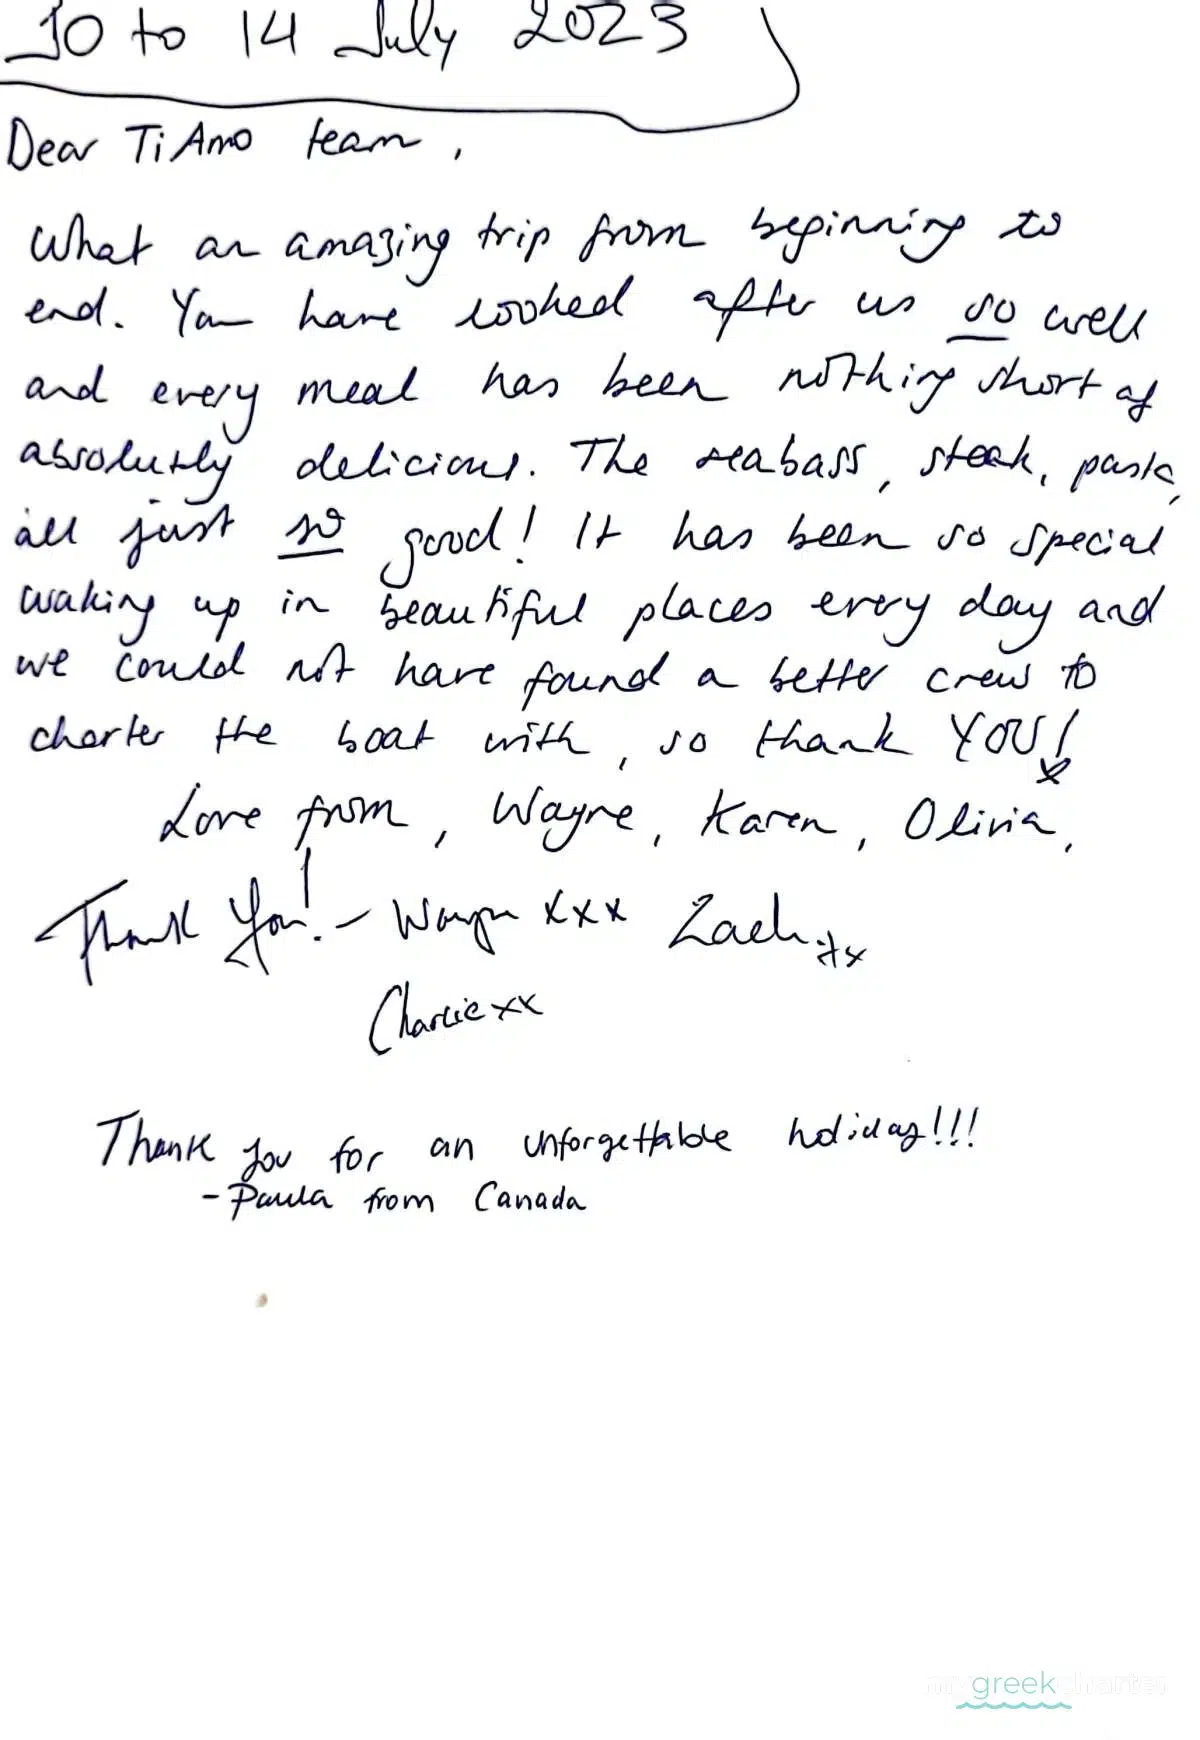 10 to 14 July 2023
Dear Ti Amo team,
What an amazing trip from beginning to
end. You have looked after us so well
and every meal has been nothing short of
absolutely delicious. The seabass, steak, pasta,
all just so good! It has been so special
waking up in beautiful places every day and
we could not have found a better crew to
charter the boat with, so thank YOU! x
Love from, Wayne, Karen, Olivia,
Thank You! - Wayne xxx Zach xx
Charlie xx
Thank you for an unforgettable holiday!!!
- Paula from Canada
mygreekcharter